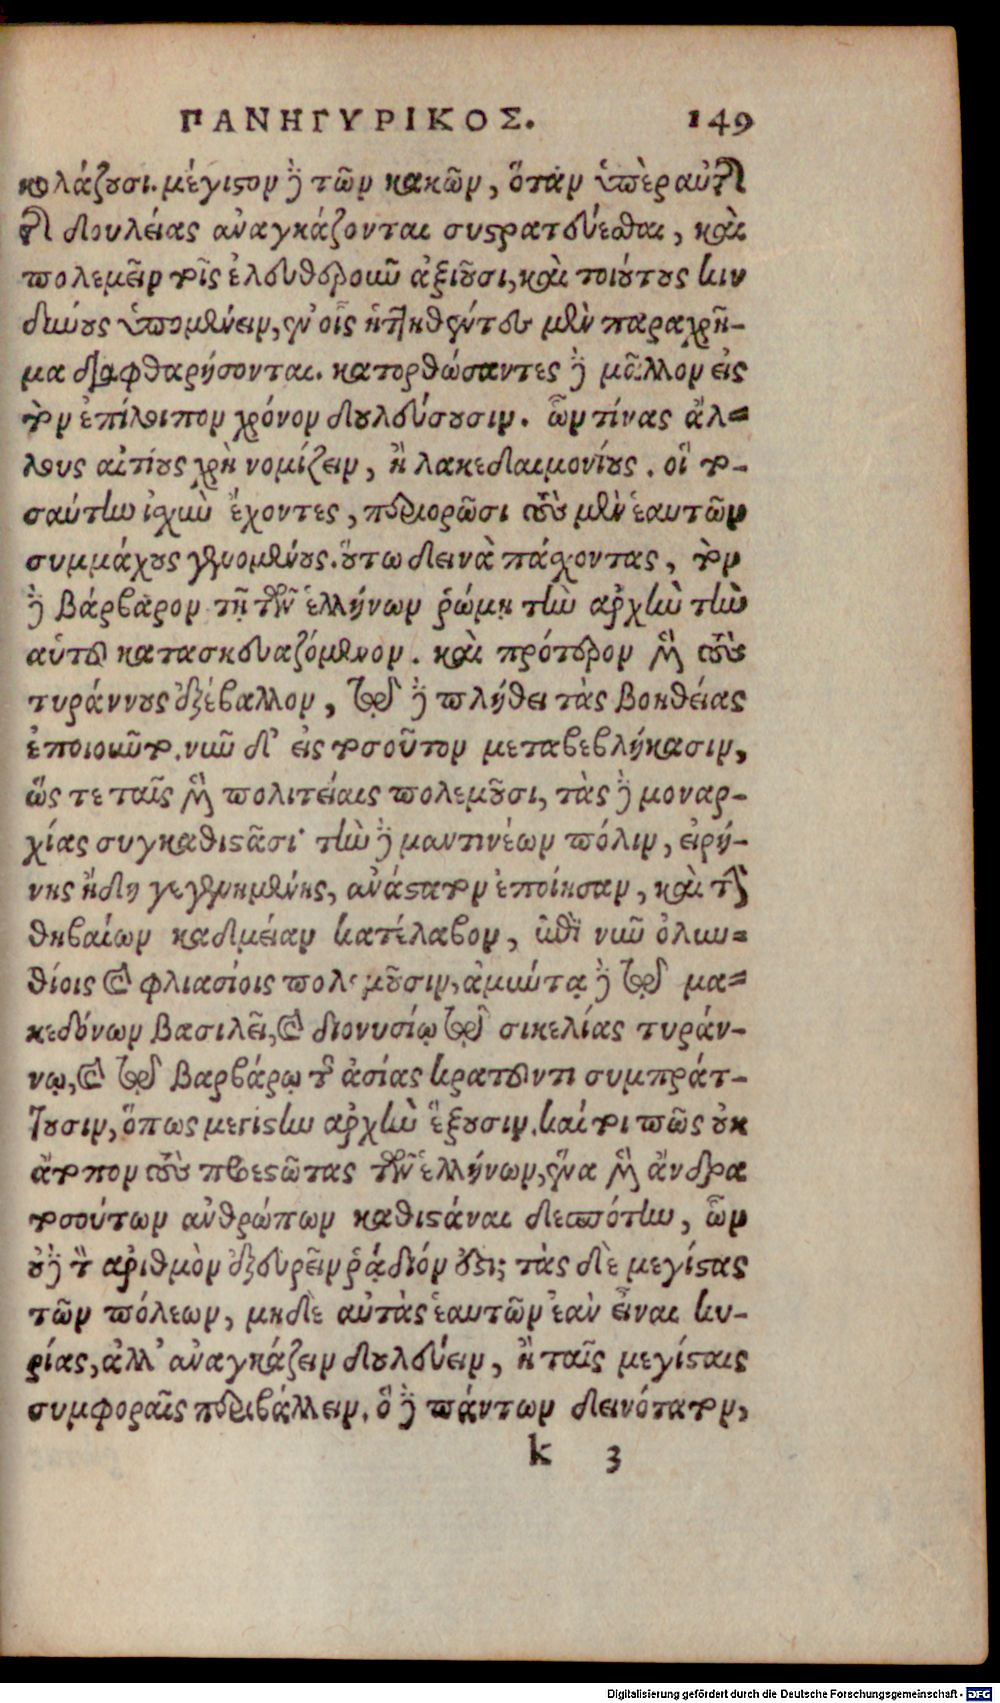 ΠΑΝΗΓΥΡΙΚΟΣ. 149
κολάζουσι. μέγιστον δὲ τῶν κακῶν, ὅταν ὑπὲρ αὐτῆς
τῆς δουλείας ἀναγκάζονται συστρατεύεσθαι, καὶ
πολεμεῖν τοῖς ἐλευθεροῦν ἀξιοῦσι, καὶ τοιούτους κιν
δύνους ὑπομένειν, ἐν οἷς ἡττηθέντες μὲν παραχρῆ-
μα διαφθαρήσονται. κατορθώσαντες δὲ μᾶλλον εἰς
τὸν ἐπίλοιπον χρόνον δουλεύσουσιν. ὧν τίνας ἄλ-
λους αἰτίους χρὴ νομίζειν, ἢ λακεδαιμονίους. οἳ το-
σαύτην ἰσχὺν ἔχοντες, περιορῶσι τοὺς μὲν ἑαυτῶν
συμμάχους γενομένους. οὕτω δεινὰ πάσχοντας, τὸν
δὲ βάρβαρον τῇ τῶν ἑλλήνων ῥώμῃ τὴν ἀρχὴν τὴν
αὑτοῦ κατασκευαζόμενον. καὶ πρότερον μὲν τοὺς
τυράννους ἐξέβαλλον, τῷ δὲ πλήθει τὰς βοηθείας
ἐποιοῦντο. νῦν δ' εἰς τοσοῦτον μεταβεβλήκασιν,
ὥς τε ταῖς μὲν πολιτείαις πολεμοῦσι, τὰς δὲ μοναρ-
χίας συγκαθιστᾶσι· τὴν δὲ μαντινέων πόλιν, εἰρή-
νης ἤδη γεγενημένης, ἀνάστατον ἐποίησαν, καὶ τὴν
θηβαίων καδμείαν κατέλαβον, καὶ νῦν ὀλυν-
θίοις καὶ φλιασίοις πολεμοῦσιν, ἀμύντᾳ δὲ τῷ μα-
κεδόνων βασιλεῖ, καὶ διονυσίῳ τῷ σικελίας τυράν-
νῳ, καὶ τῷ βαρβάρῳ τῷ ἀσίας κρατοῦντι συμπράτ-
τουσιν, ὅπως μεγίστην ἀρχὴν ἕξουσιν. καί τοι πῶς οὐκ
ἄτοπον τοὺς προεστῶτας τῶν ἑλλήνων, ἕνα μὲν ἄνδρα
τοσούτων ἀνθρώπων καθιστάναι δεσπότην, ὧν
οὐδὲ τὸν ἀριθμὸν ἐξευρεῖν ῥᾴδιόν ἐστι; τὰς δὲ μεγίστας
τῶν πόλεων, μηδὲ αὐτὰς ἑαυτῶν ἐᾶν εἶναι κυ-
ρίας, ἀλλ' ἀναγκάζειν δουλεύειν, ἢ ταῖς μεγίσταις
συμφοραῖς περιβάλλειν. ὃ δὲ πάντων δεινότατον,
k 3
Digitalisierung gefördert durch die Deutsche Forschungsgemeinschaft - DFG